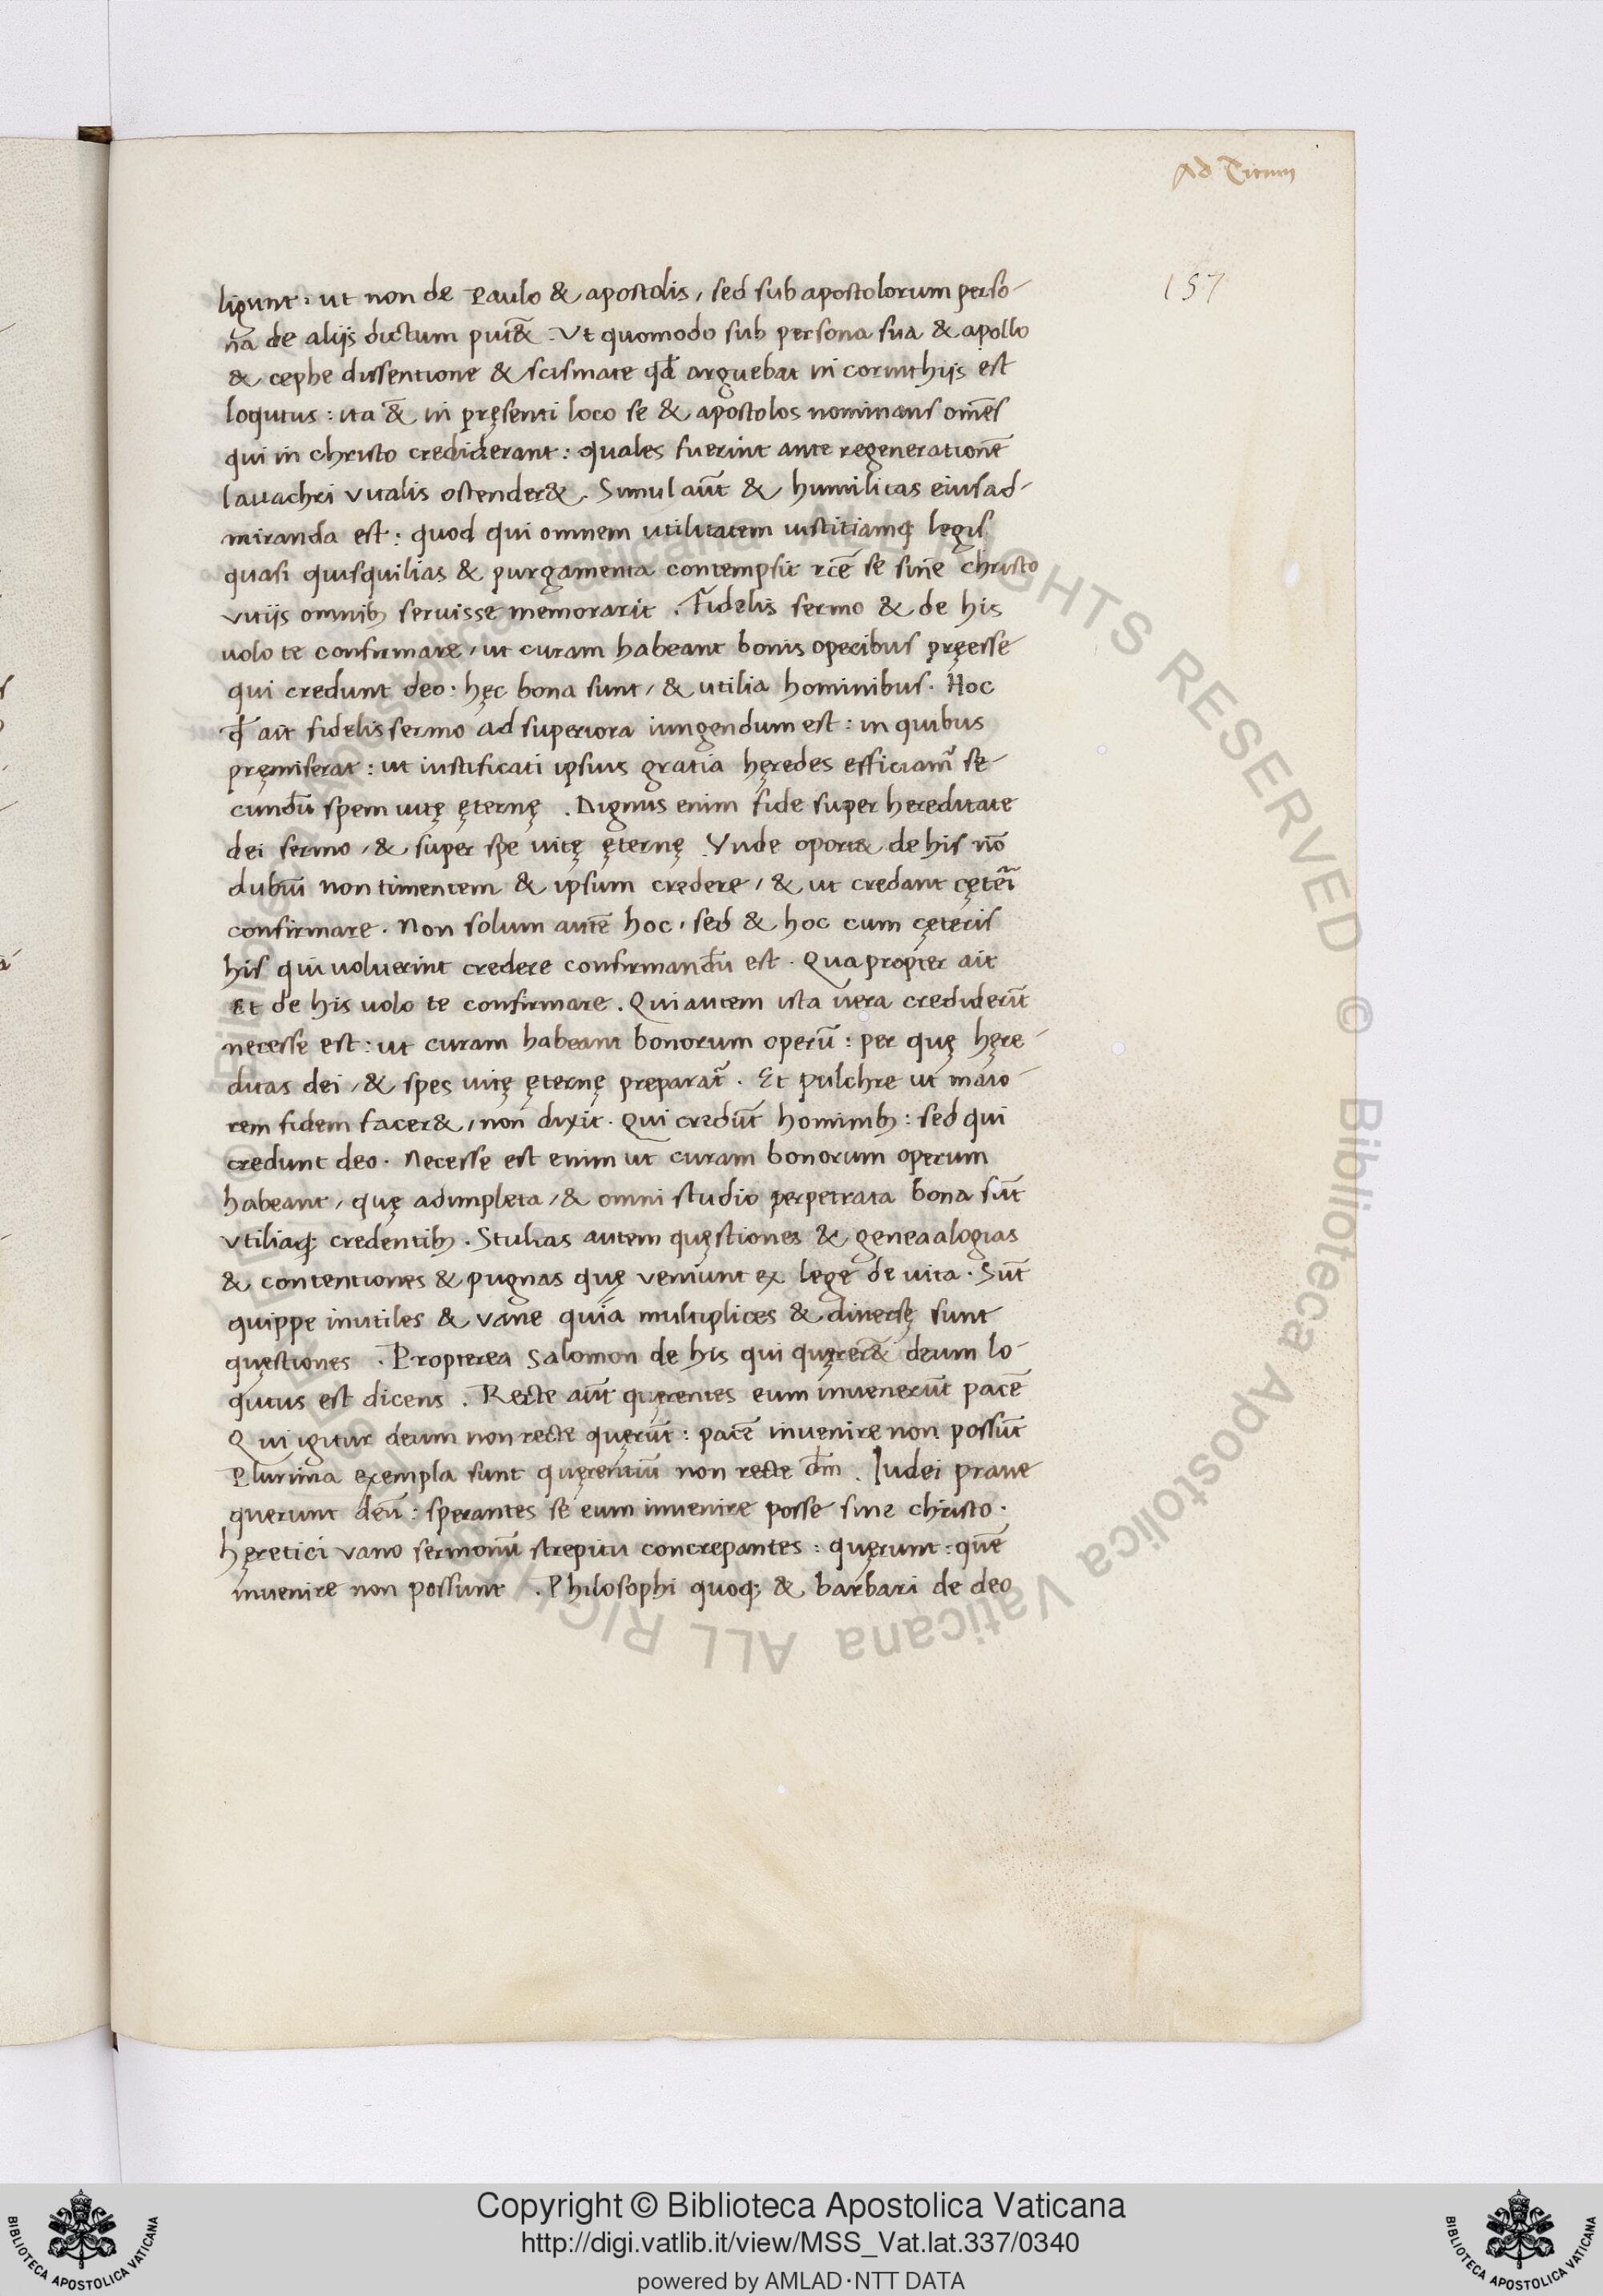 Ad Titum
157
ligunt: ut non de Paulo & apostolis, sed sub apostolorum perso-
na de alijs dictum putet̃. Ut quomodo sub persona sua & apollo
& cephe dissentione & scismate qđ arguebat in corinthijs est
loqutus: ita & in pręsenti loco se & apostolos nominans om̃es
qui in christo crediderant: quales fuerint ante regenerationẽ
lauachri vitalis ostender&. Simul aũt & humilitas eius ad-
miranda est: quod qui omnem utilitatem iustitiamq; legis
quasi quisquilias & purgamenta contempsit rcẽ se sine christo
vitijs omnib; seruisse memorarit. Fidelis sermo & de his
uolo te confirmare, ut curam habeant bonis operibus pręesse
qui credunt deo: hęc bona sunt, & utilia hominibus. Hoc
qđ ait fidelis sermo ad superiora iungendum est: in quibus
pręmiserat: ut iustificati ipsius gratia hęredes efficiam̃ se-
cundũ spem uitę ęternę. Dignus enim fide super hereditate
dei sermo, & super spe uitę ęternę. Vnde oport& de his nõ
dubiũ non timentem & ipsum credere, & ut credant cęteri
confirmare. Non solum autẽ hoc, sed & hoc cum cęteris
his qui uoluerint credere confirmandũ est. Qua propter ait
Et de his uolo te confirmare. Qui autem ista uera crediderũt
necesse est: ut curam habeant bonorum operũ: per quę hęre-
ditas dei, & spes uitę ęternę preparat̃. Et pulchre ut maio-
rem fidem facer&, non dixit. Qui credũt hominib;: sed qui
credunt deo. Necesse est enim ut curam bonorum operum
habeant, quę adimpleta, & omni studio perpetrata bona sũt
vtiliaq; credentib;. Stultas autem quęstiones & geneaalogias
& contentiones & pugnas quę veniunt ex lege de uita. Sũt
quippe inutiles & vane quia multiplices & diuersę sunt
quęstiones. Propterea Salomon de his qui quęrer& deum lo-
qutus est dicens. Recte aũt quęrentes eum inuenerũt pacẽ
Qui igitur deum non recte quęrũt: pacẽ inuenire non possũt
Plurima exempla sunt quęrentiũ non recte dm̃. Iudei praue
querunt deũ: sperantes se eum inuenire posse sine christo.
hęretici vano sermonũ strepitu concrepantes: quęrunt: quẽ
inuenire non possunt. Philosophi quoq; & barbari de deo
© Biblioteca Apostolica Vaticana ALL RIGHTS RESERVED
Copyright © Biblioteca Apostolica Vaticana
http://digi.vatlib.it/view/MSS_Vat.lat.337/0340
powered by AMLAD·NTT DATA
BIBLIOTECA APOSTOLICA VATICANA
BIBLIOTECA APOSTOLICA VATICANA